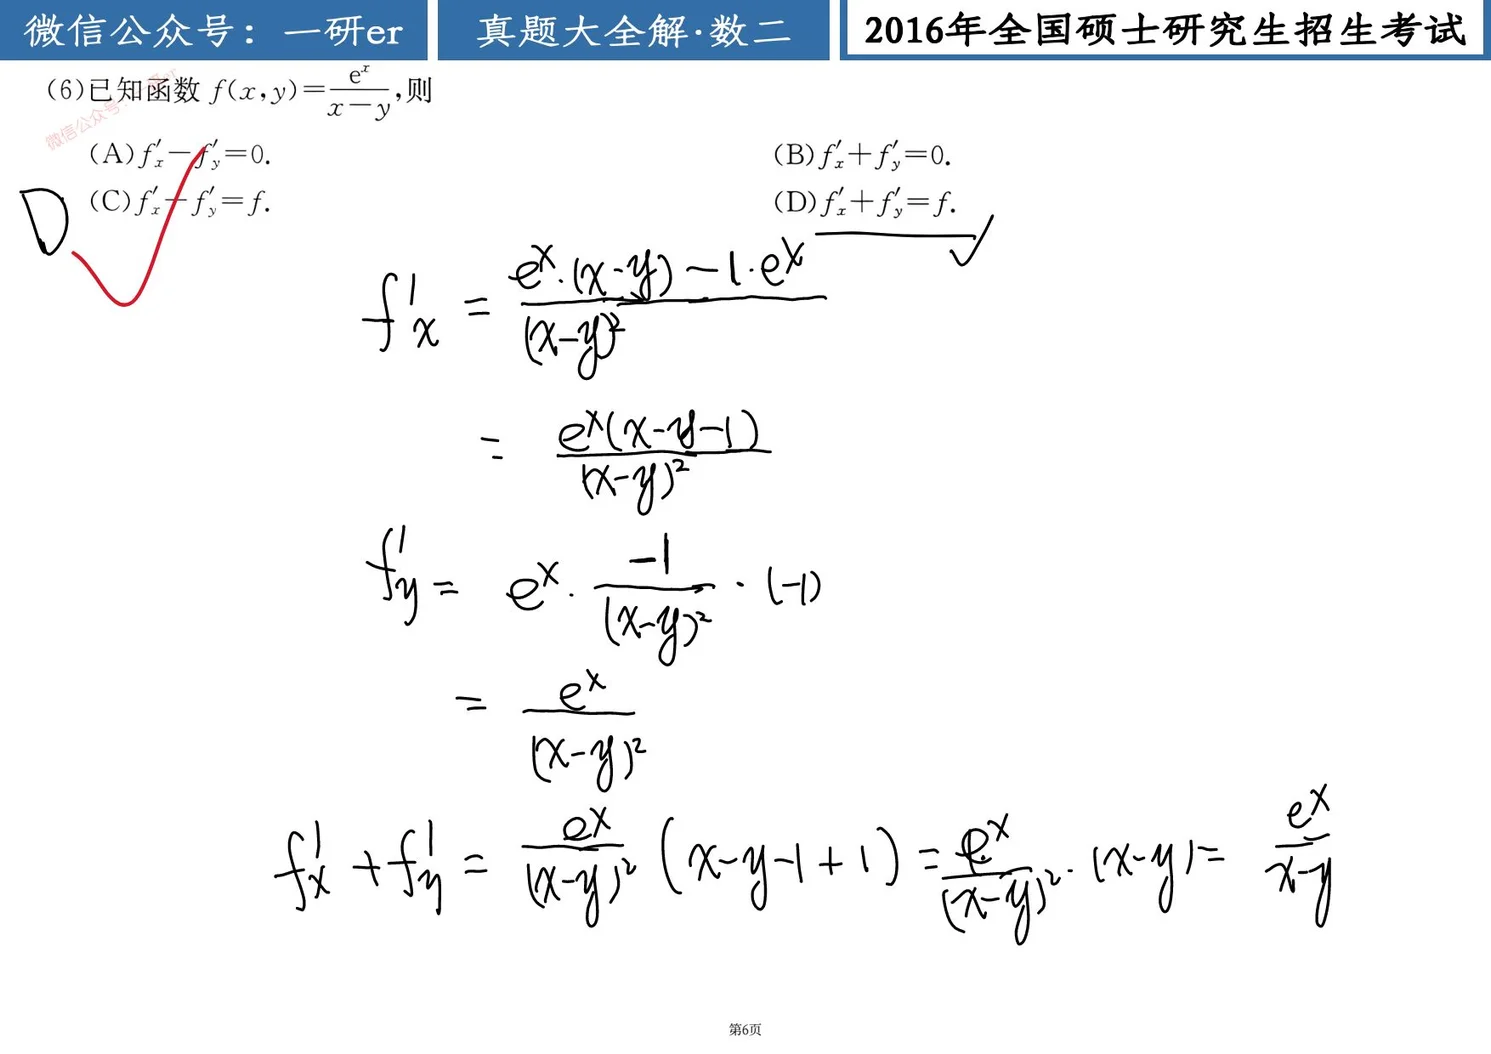 微信公众号：一研er
真题大全解·数二
2016年全国硕士研究生招生考试
(6)已知函数 f(x,y)=e^x/(x-y),则
微信公众号：一研er
(A)f'_x-f'_y=0.
(B)f'_x+f'_y=0.
(C)f'_x-f'_y=f.
(D)f'_x+f'_y=f.
D
f'_x = (e^x·(x-y)-1·e^x)/(x-y)^2
= e^x(x-y-1)/(x-y)^2
f'_y = e^x · -1/(x-y)^2 · (-1)
= e^x/(x-y)^2
f'_x + f'_y = e^x/(x-y)^2 (x-y-1+1) = e^x/(x-y)^2 · (x-y) = e^x/(x-y)
第6页